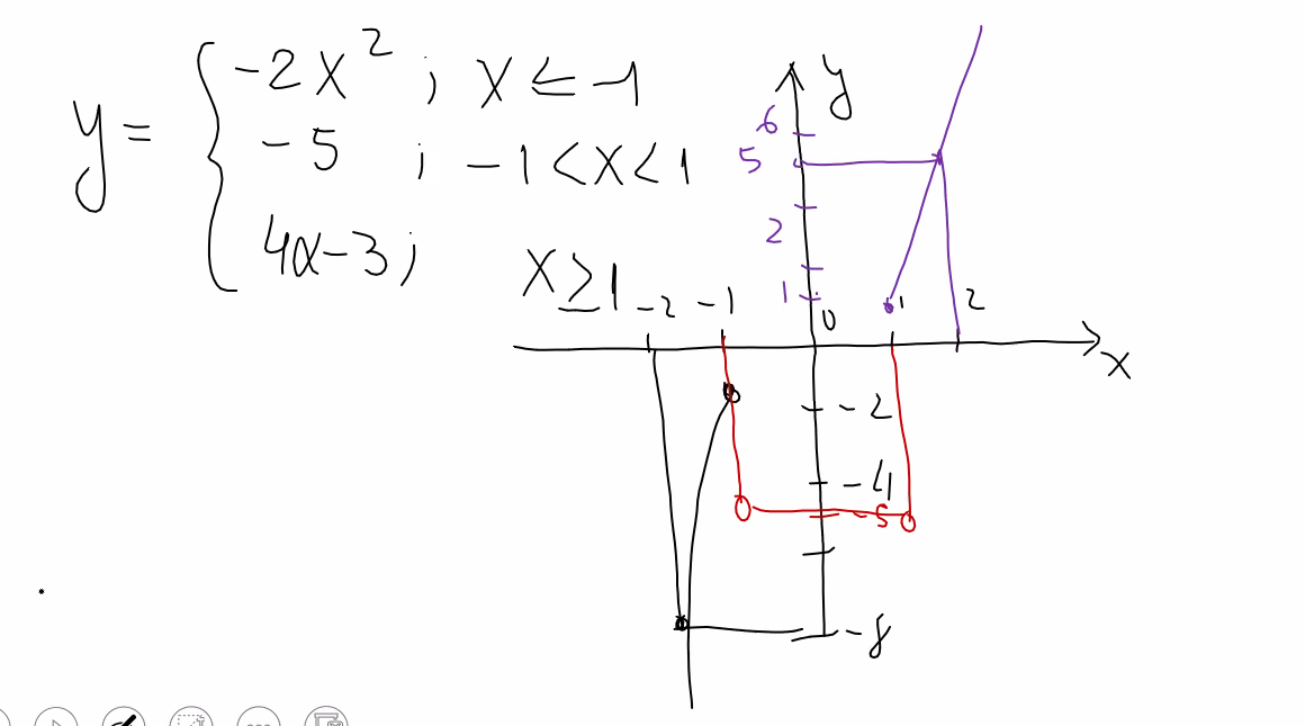 y = { -2x² ; x ≤ -1
-5 ; -1 < x < 1
4x-3 ; x ≥ 1
y
6
5
2
1
-2 -1 0 1 2
x
-2
-4
-5
-8